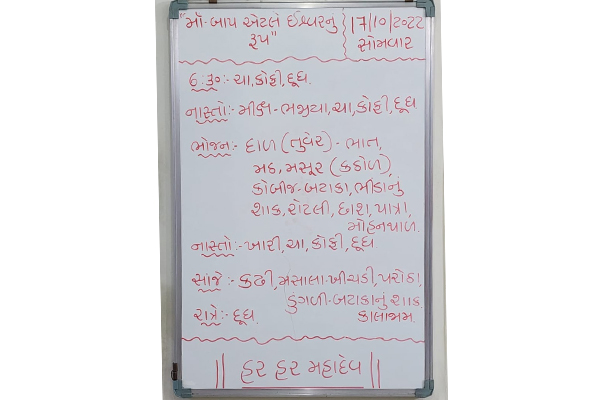 "માઁ-બાપ એટલે ઈશ્વરનું
રૂપ"
17/10/૨૦૨૨
સોમવાર
6:૩૦:- ચા,કોફી,દૂધ.
નાસ્તો:- મીક્ષ-ભજીયા,ચા,કોફી,દૂધ
ભોજન:- દાળ (તુવેર) - ભાત,
મઠ, મસૂર (કઠોળ),
કોબીજ-બટાકા,ભીંડાનું
શાક,રોટલી,છાશ,પાત્રા,
મોહનથાળ.
નાસ્તો:- ખારી,ચા,કોફી,દૂધ.
સાંજે:- કઢી,મસાલા-ખીચડી,પરોઠા,
ડુંગળી-બટાકાનું શાક
રાત્રે:- દૂધ. કાલાજામ.
|| હર હર મહાદેવ ||